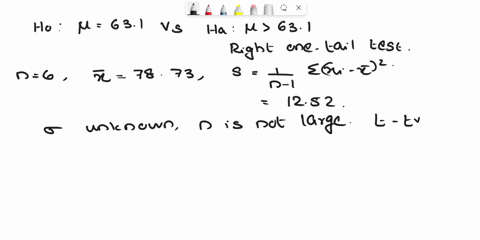 Ho: μ = 63.1 vs Ha: μ > 63.1
Right one-tail test.
n=6, x̄ = 78.73, s = 1/(n-1) Σ(xi - x̄)².
= 12.52.
σ unknown, n is not large. t-